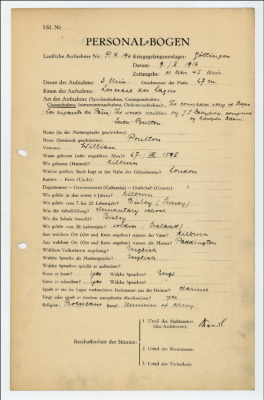 Lfd. Nr.
PERSONAL-BOGEN
Lautliche Aufnahme Nr.: P.K. 490 Kriegsgefangenenlager: Göttingen
Datum: 9. / X. 1916
Zeitangabe: 11 Uhr 45 Min
Dauer der Aufnahme: 3 Min. Durchmesser der Platte: 27 cm
Raum der Aufnahme: des Lagers
Art der Aufnahme (Sprechaufnahme, Gesangsaufnahme,
Name (in der Muttersprache geschrieben):
Name (lateinisch geschrieben): Poulton
Vorname: William
Wann geboren (oder ungefähres Alter)? 27. 1895
Wo geboren (Heimat)? Kilburn
Welche größere Stadt liegt in der Nähe des Geburtsortes? London
Kanton – Kreis (Ujedz):
Departement – Gouvernement (Gubernija) – Grafschaft (County):
Wo gelebt in den ersten 6 Jahren? Kilburn
Wo gelebt vom 7. bis 20. Lebensjahr? Bisley (Surrey)
Was für Schulbildung? elementary school
Wo die Schule besucht? Bisley
Wo gelebt vom 20. Lebensjahr? soldier, Ireland
Aus welchem Ort (Ort und Kreis angeben) stammt der Vater? Kilburn
Aus welchem Ort (Ort und Kreis angeben) stammt die Mutter? Paddington
Welchem Volksstamm angehörig? English
Welche Sprache als Muttersprache? English
Welche Sprachen spricht er außerdem?
Kann er lesen? yes Welche Sprachen? Engl.
Kann er schreiben? yes Welche Sprachen?
Spielt er ein im Lager vorhandenes Instrument aus der Heimat? clarinet
Singt oder spielt er modern europäische Musikweisen? yes
Religion: Protestant Beruf: Musician army
Beschaffenheit der Stimme:
1. Urteil des Fachmannes
(des Assistenten):
2. Urteil des Kommissars:
3. Urteil des Technikers: